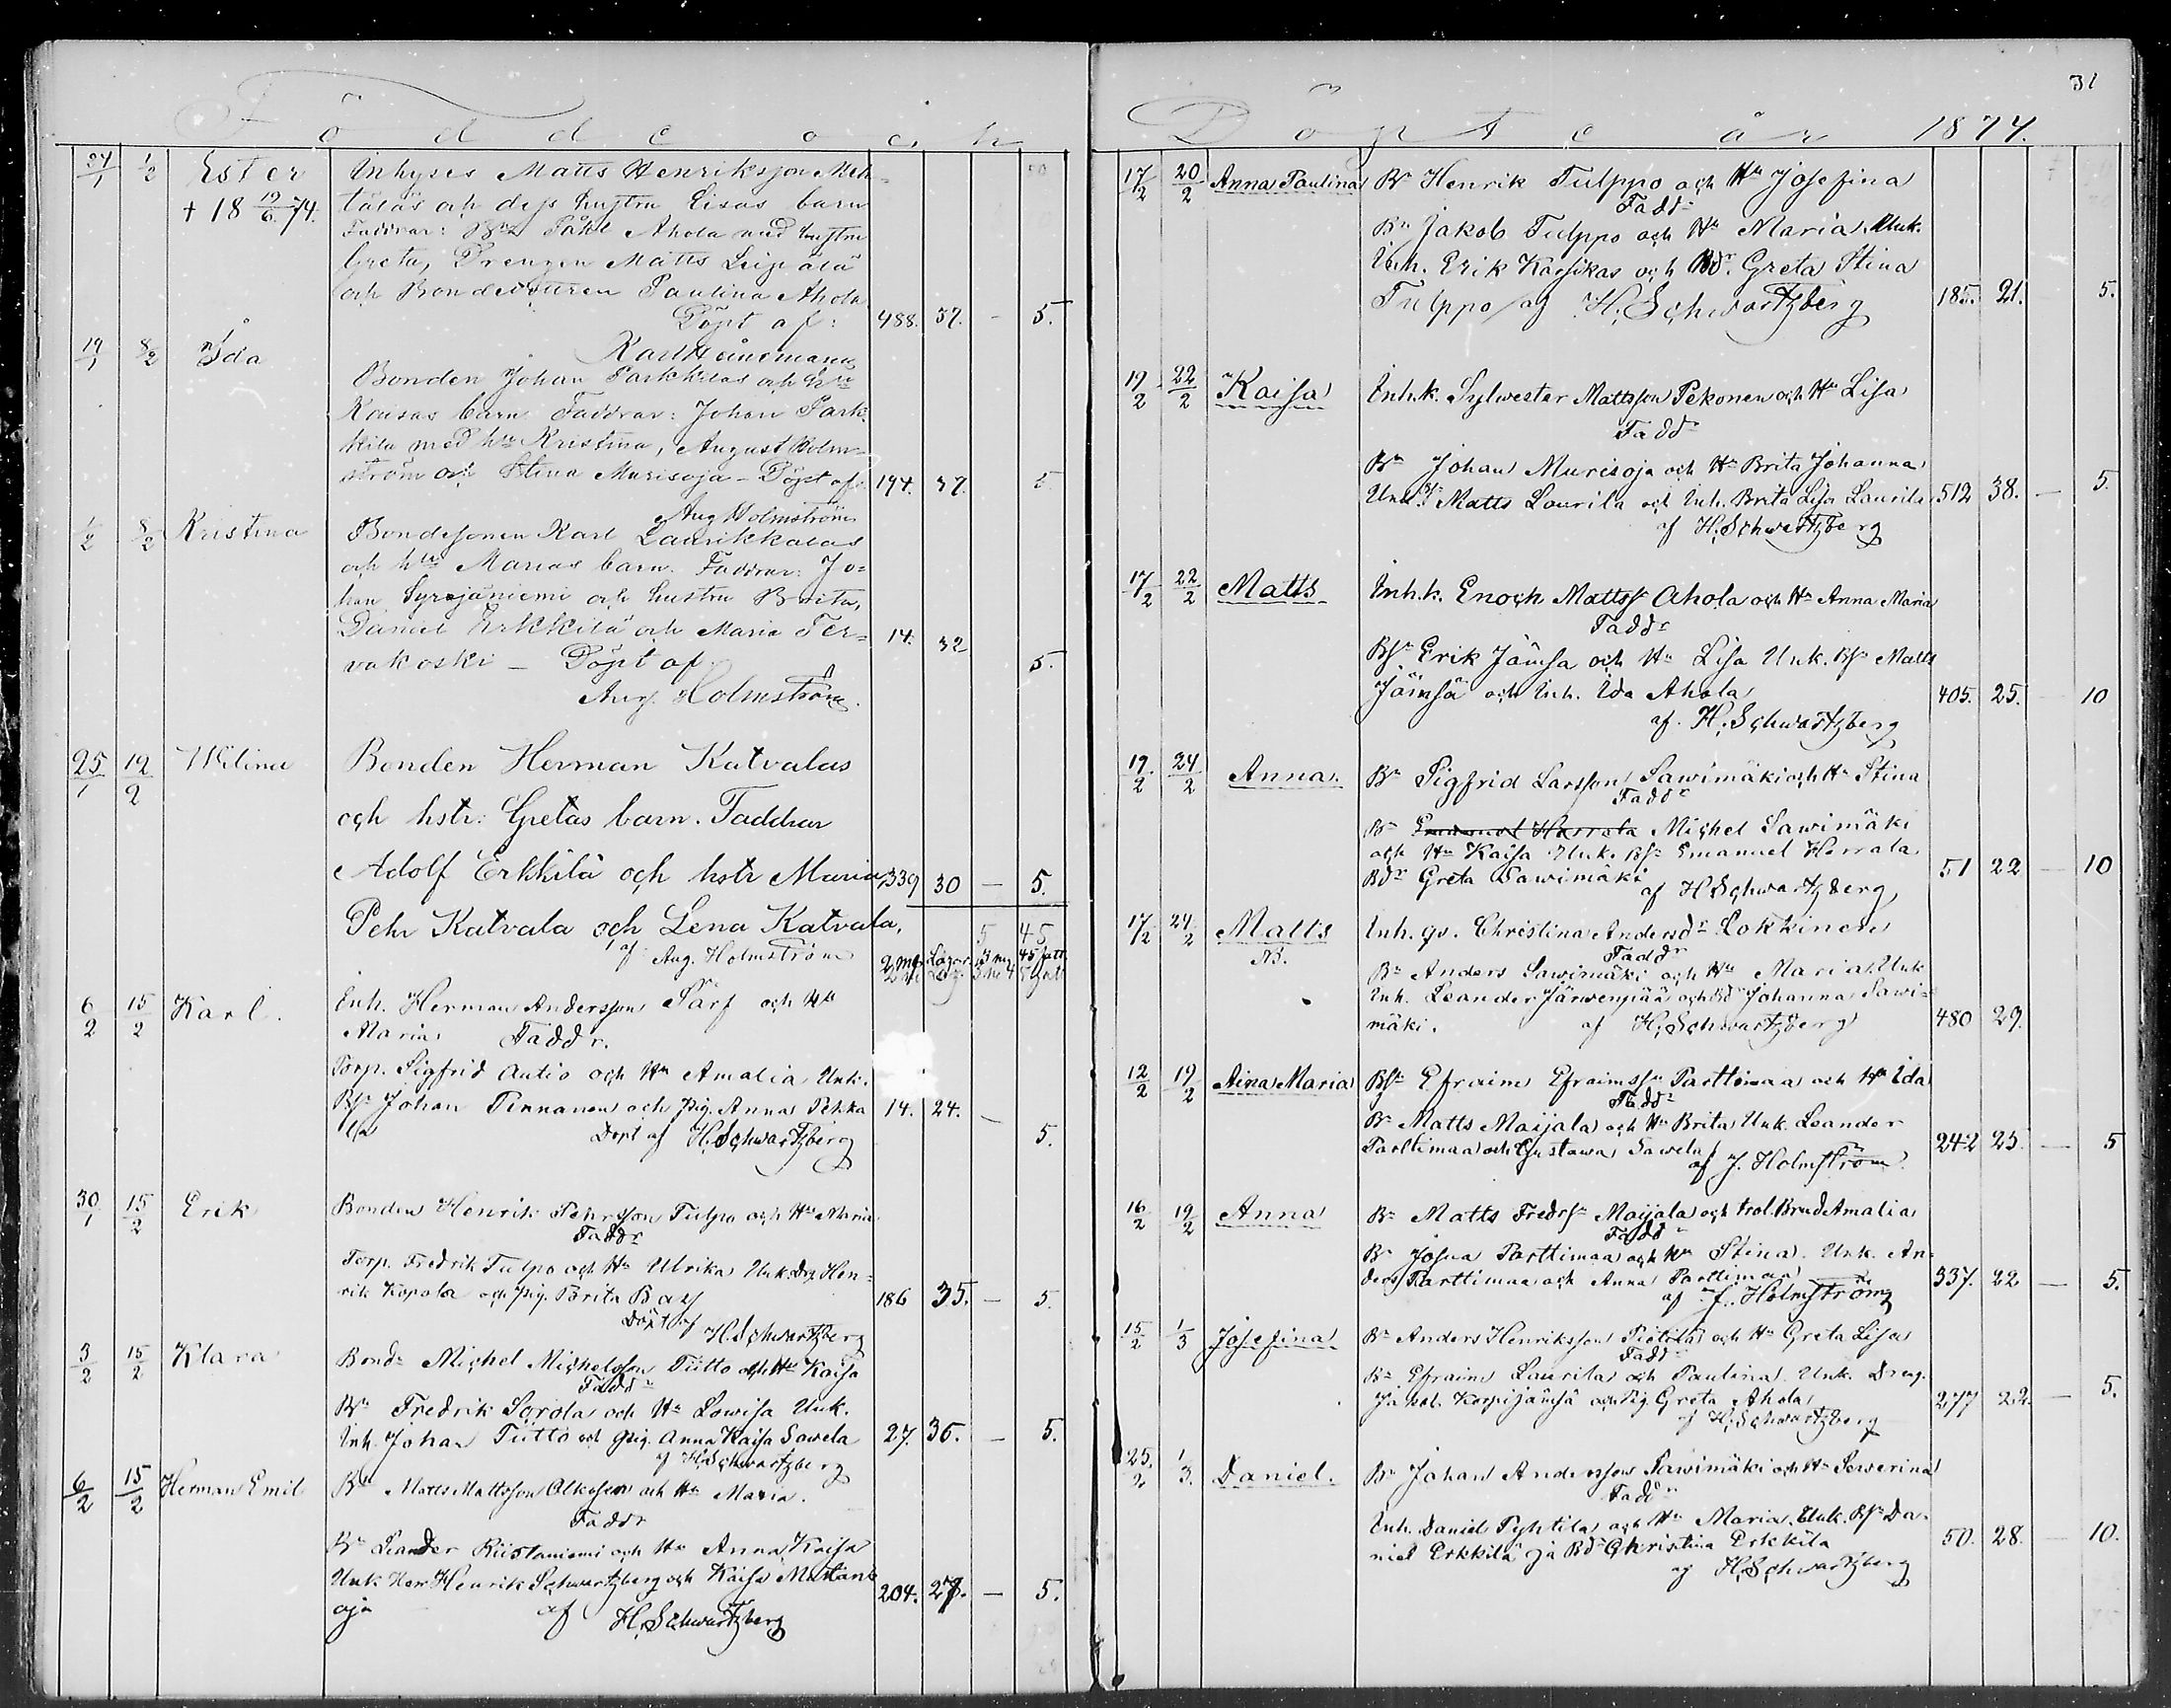 31
Födde och
Döpte år 1874.
24/1 1/2 Ester Inhyses Matts Henriksson
† 18 19/6 74. och dess hustru Lisas barn
Faddrar: Påhl Ahola med hustru
Greta, Drengen Matts Leipälä
och Bondedottren Paulina Ahola
Döpt af: 488. 37. - 5.
Karl Heikel
19/1 8/2 Ida
Bonden Johan Parkkilas och hru
Kaisas barn Faddrar: Johan Park
kila med hru Kristina, August Holm-
ström och Stina Murisoja - Döpt af 194. 37. 5
Aug Holmström
1/2 8/2 Kristina Bondesonen Karl Laurikkalas
och hru Marias barn. Faddrar: Jo=
han Syrjäniemi och hustru Brita,
Daniel Erkkilä och Maria Ter= 14. 32
vakoski - Döpt af 5.
Aug. Holmström.
25/1 12/2 Wilina Bonden Herman Katvalas
och hstr: Gretas barn. Faddrar
Adolf Erkkilä och hstr Maria, 339 30 — 5.
Pehr Katvala och Lena Katvala, 5 45
af Aug. Holmström
6/2 15/2 Karl. Inh. Herman Andersson Särf och Hu
Maria Faddr.
Torp. Sigfrid Autio och Hu Amalia Unk.
Bsn Johan Pinnanen och pig. Anna Pekka 14. 24. —
la Döpt af H. Schwartzberg 5.
30/1 15/2 Erik Bonden Henrik Pehrsson Tulpo och Hu Maria
Faddr
Torp. Fredrik Tulpo och Hu Ulrika Unk. Drg Hen=
rik Kopola och pig. Brita Bay 186 35. — 5.
Döpt af H. Schwartzberg
3/2 15/2 Klara Bondn Michel Michelsson Tütto och Hu Kaisa
Faddr
Bn Fredrik Sorola och Hu Lowisa Unk.
Inh. Johan Tütto och pig. Anna Kaisa Sawela 27. 36. — 5.
af H. Schwartzberg
6/2 15/2 Herman Emil Bn Matts Mattsson Alkysen och Hu Maria.
Faddr
Bn Leander Riistaniemi och Hu Anna Kaisa
Unk. Herr Henrik Schwartzberg och Kaisa 204. 27. — 5.
oja af H. Schwartzberg
17/2 20/2 Anna Paulina Bn Henrik Tulppo och Hu Josefina
Faddr
Bn Jakob Tulppo och Hu Maria. Unk.
Inh. Erik Karsikas och Bdr. Greta Stina
Tulppo af H. Schwartzberg 185. 21. 5.
19/2 22/2 Kaisa Inh.k. Sylwester Mattsson Pekonen och Hu Lisa
Faddr
Bn Johan Murisoja och Hu Brita Johanna
Unk. Matts Laurila och Inh. Brita Lisa Laurila 512 38. — 5
af H. Schwartzberg
17/2 22/2 Matts Inh.k. Enoch Mattss Ahola och Hu Anna Maria
Faddr
Bsn Erik Jämsä och Hu Lisa Unk. Bsn Matts
Jämsä och Inh. Ida Ahola 405. 25. — 10
af. H. Schwartzberg
19/2 24/2 Anna. Bn Sigfrid Larsson Sawimäki och Hu Stina
Faddr
Bn Emanuel Harrala Michel Sawimäki
och Hu Kaisa Unk. Bsn Emanuel Herrala
Bdr Greta Sawimäki 51 22 — 10
af H. Schwartzberg
17/2 24/2 Matts Inh. qv. Christina Andersdr Lokkinen
NB. Faddr
Bn Anders Sawimäki och Hu Maria. Unk
Inh. Leander Järwenpää och Bdr Johanna Sawi=
mäki. af H. Schwartzberg 480 29.
12/2 19/2 Aina Maria Bsn Efraim Efraimssn Parttimaa och Hu Ida
Faddr
Bn Matts Maijala och Hu Brita Unk. Leander
Parttimaa och Gustawa Sawela 242 25. — 5
af J. Holmström
16/2 19/2 Anna Bn Matts Fredrsn Maijala och trol. Brud Amalia
Faddr
Bn Josua Parttimaa och Hu Stina. Unk. An=
ders Parttimaa och Anna Parttimaa 337. 22 — 5.
af J. Holmström
15/2 1/3 Josefina Bn Anders Henriksson Pietila och Hu Greta Lisa
Faddr
Bn Efraim Laurila och Paulina. Unk. Dreng.
Jakob. Korpijämsä och Pig. Greta Ahola 277 22 — 5.
af H. Schwartzberg
25/2 1/3 Daniel. Bn Johan Andersson Sawimäki och Hu Sewerina
Faddr
Inh. Daniel Pyhtila och Hu Maria. Unk. Bsn Da-
niel Erkkilä ja Bdr Christina Erkkila 50. 28. — 10.
af H. Schwartzberg